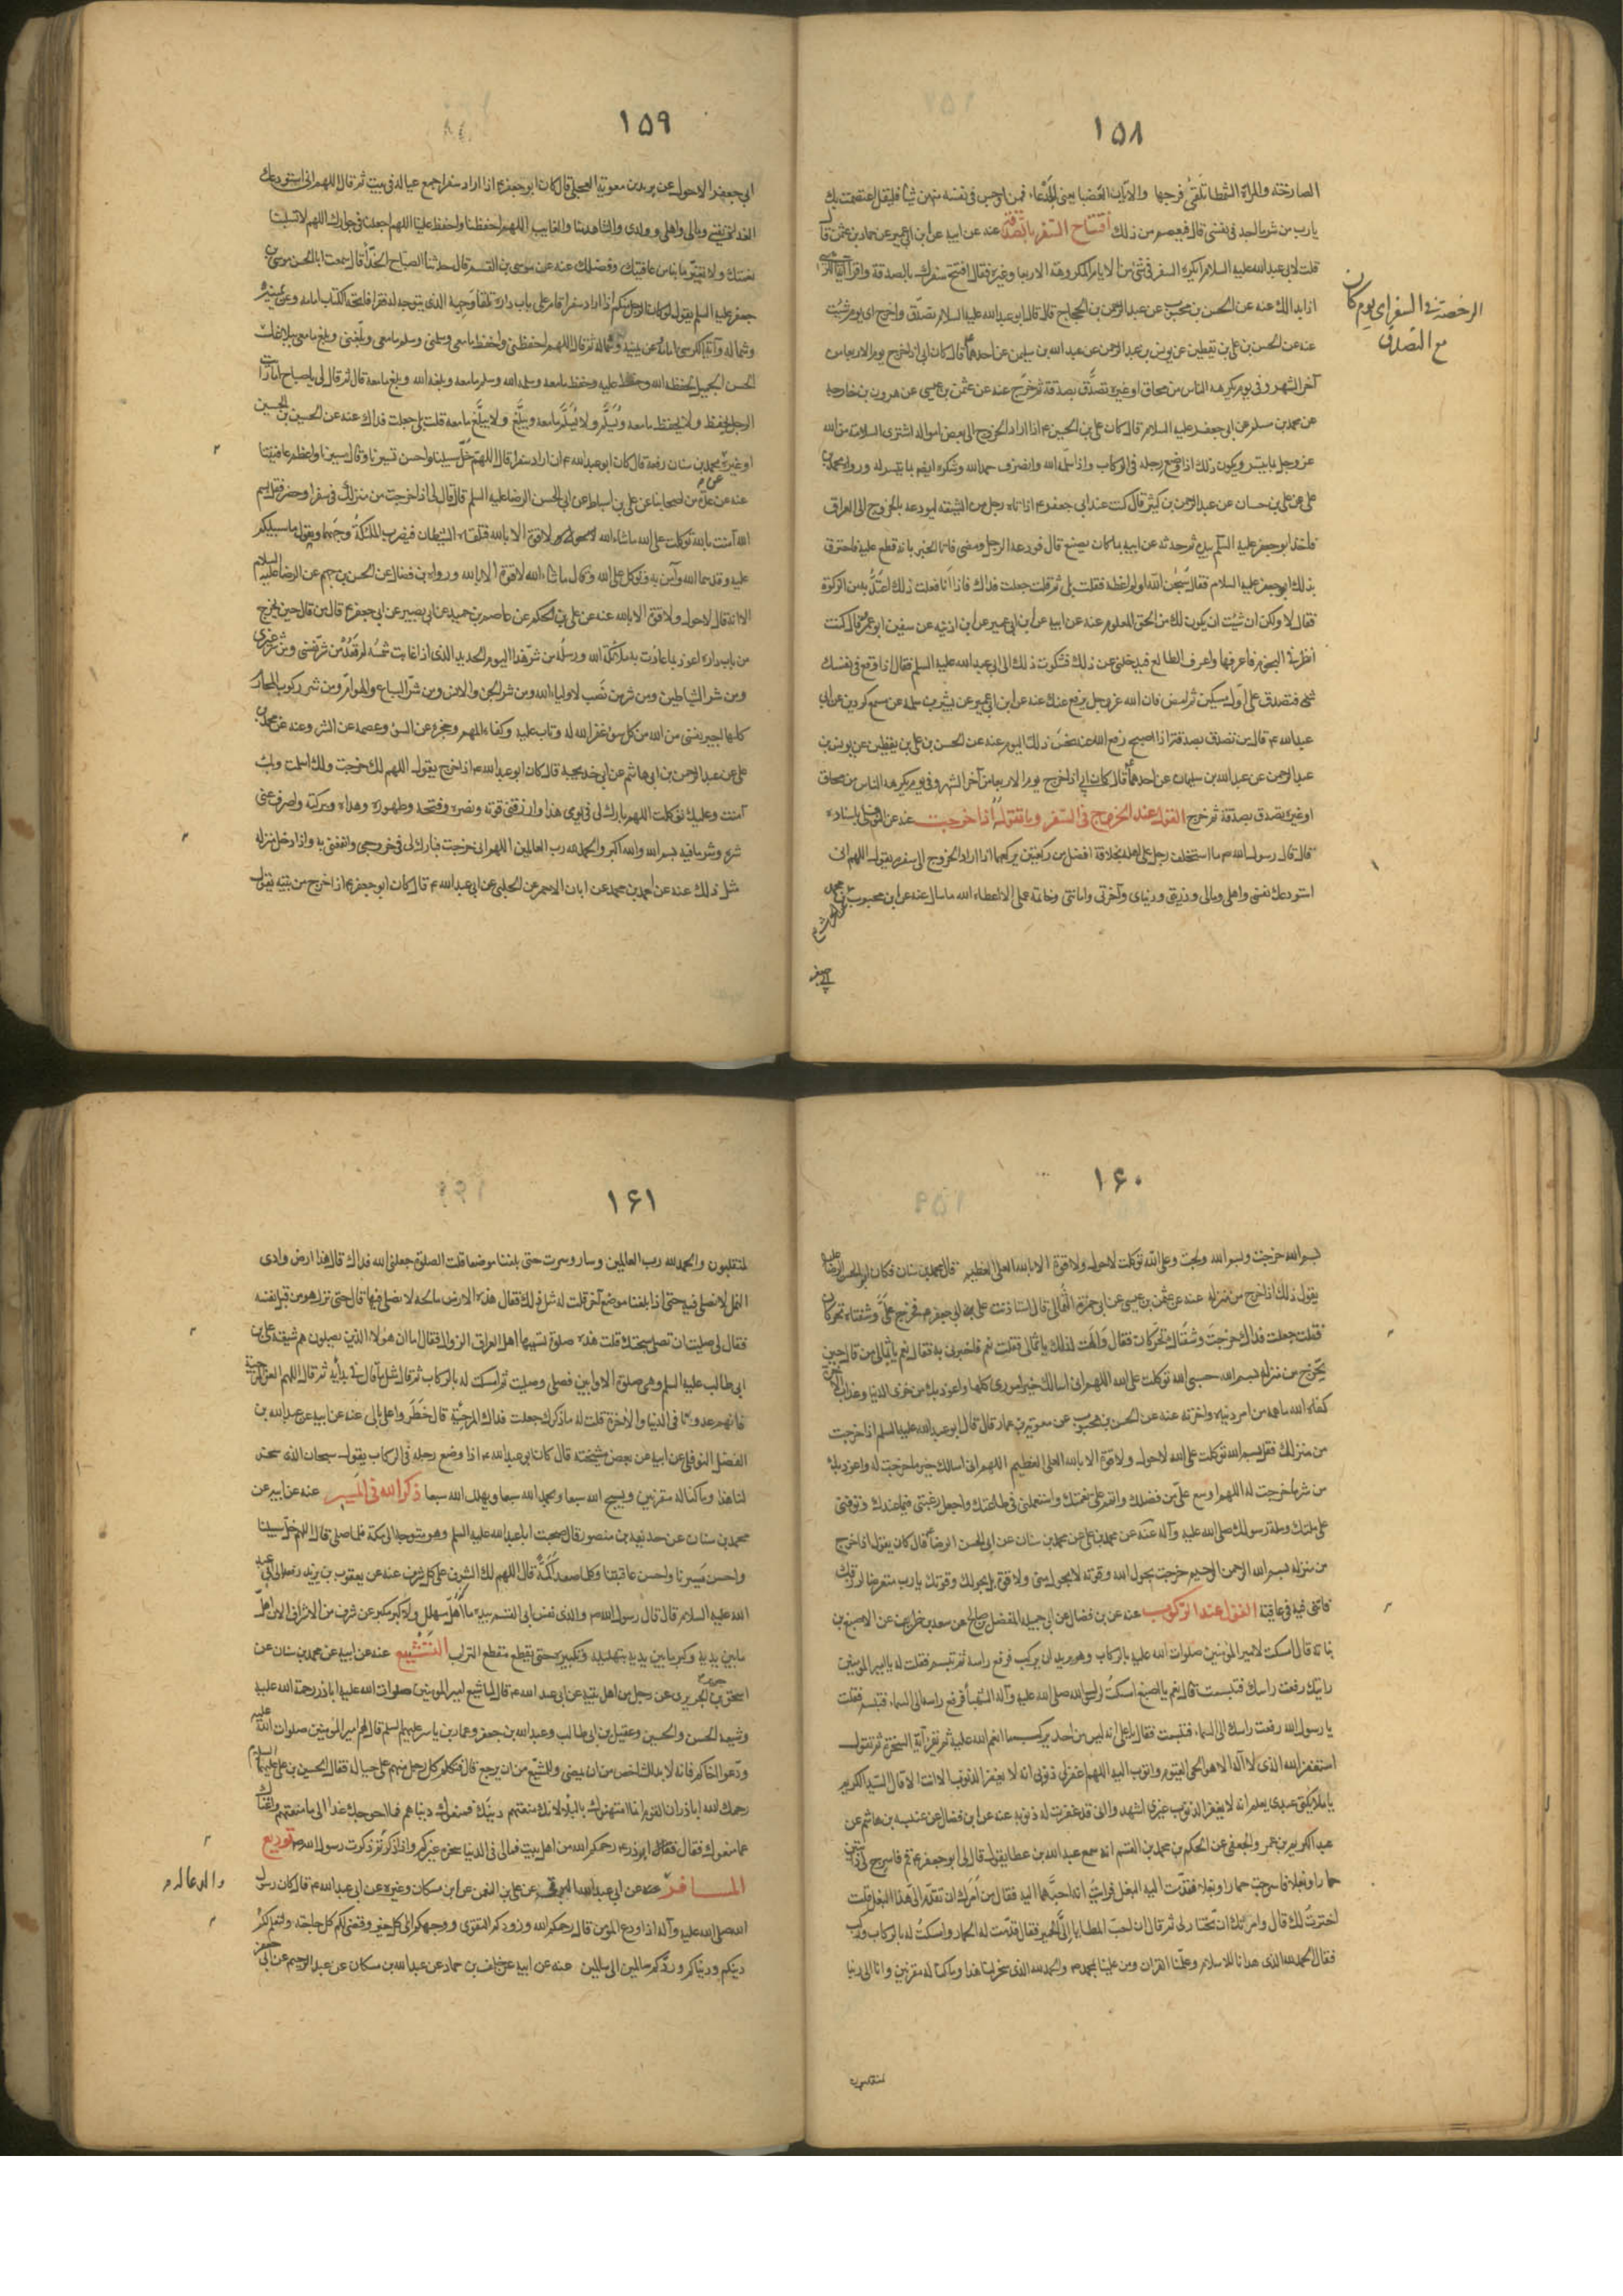 ١٥٨
الصارخة والمراة الشمطا تلقى فرجها والاتان العضبا يعنى الجدعاء فمن اوجس فى نفسه منهن شيئا فليقل اعتصمت بك
يارب من شر ما اجد فى نفسى قال فيعصم من ذلك افتتاح السفر بالصدقة عنه عن ابيه عن ابن ابى عمير عن حماد بن عثمن قال
قلت لابى عبدالله عليه السلام ايكره السفر فى شئ من الايام المكروهة الاربعا وغيره فقال افتتح سفرك بالصدقة واقرا آية الكرسى
اذا بدا لك عنه عن الحسن بن محبوب عن عبد الرحمن بن الحجاج قال قال ابو عبد الله عليه السلام تصدّق واخرج اى يوم شئت
عنه عن الحسن بن على بن يقطين عن يونس بن عبد الرحمن عن عبد الله بن سليمن عن احدهما قال كان ابى اذا خرج يوم الاربعا من
آخر الشهر وفى يوم يكرهه الناس من محاق اوغيره تصدّق بصدقة ثم خرج عنه عن عثمن بن عيسى عن هرون بن خارجه
عن محمد بن مسلم عن ابى جعفر عليه السلام قال كان على بن الحسين ع اذا اراد الخروج الى بعض امواله اشترى السلامة من الله
عز وجل بما تيسر ويكون ذلك اذا وضع رجله فى الركاب واذا سلّمه الله وانصرف حمد الله وشكره ايضم بما تيسر له ورواه محمد بن
على عن على بن حسان عن عبد الرحمن بن كثير قال كنت عند ابى جعفر ع اذ اتاه رجل من الشيعة ليودعه بالخروج الى العراق
فاخذ ابو جعفر عليه السلم بيده ثم حدثه عن ابيه بما كان يصنع قال فودعه الرجل ومضى فاتاه الخبر بانه قطع عليه فاخبرت
بذلك ابو جعفر عليه السلام فقال سبحن الله اولم اعظه فقلت بلى ثم قلت جعلت فداك فاذا انا فعلت ذلك اعتدّ به من الزكوة
فقال لا ولكن ان شئت ان يكون لك من الحق المعلوم عنه عن ابيه عن ابن ابى عمير عن ابن اذينه عن سفين ابو عمر قال كنت
انظر فى النجوم فاعرفها واعرف الطالع فيدخلنى من ذلك فشكوت ذلك الى ابى عبد الله عليه السلم فقال اذا وقع فى نفسك
شئ فتصدق على اول مسكين ثم امض فان الله عز وجل يدفع عنك عنه عن ابن ابى عمير عن بشر بن سلمه عن مسمع كردين عن ابى
عبدالله ع قال من تصدق بصدقة اذا اصبح دفع الله عنه نحس ذلك اليوم عنه عن الحسن بن على بن يقطين عن يونس بن
عبد الرحمن عن عبد الله بن سليمان عن احدهما قال كان ابى اذا خرج يوم الاربعا من آخر الشهر وفى يوم يكرهه الناس من محاق
اوغيره تصدق بصدقة ثم خرج القول عند الخروج فى السفر وما تقوله اذا خرجت عنه عن النوفلى باسناده
قال قال رسول الله ص ما استخلف رجل على اهله بخلافة افضل من ركعتين يركعهما اذا اراد الخروج الى سفر يقول اللهم انى
استودعك نفسى واهلى ومالى وذريتى ودنياى وآخرتى وامانتى وخاتمة عملى الا اعطاه الله ما سال عنه عن ابن محبوب
الرخصة فى السفر اى يوم كان
مع التصدق
١٥٩
ابى جعفر الاحول عن بريد بن معوية العجلى قال كان ابو جعفر ع اذا اراد سفرا جمع عياله فى بيت ثم قال اللهم انى استودعك
الغداة نفسى ومالى واهلى وولدى والشاهد منا والغايب اللهم احفظنا واحفظ علينا اللهم اجعلنا فى جوارك اللهم لا تسلبنا
نعمتك ولا تغيّر ما بنا من عافيتك وفضلك عنه عن موسى بن القسم قال حدثنا الصباح الحذّأ قال سمعت ابا الحسن موسى بن
جعفر عليه السلم يقول لوكان الرجل منكم اذا اراد سفرا قام على باب داره تلقا وجهه الذى يتوجه له فقرا فاتحة الكتاب امامه وعن يمينه
وشماله وآية الكرسى امامه وعن يمينه وشماله ثم قال اللهم احفظنى واحفظ ما معى وسلمنى وسلم ما معى وبلّغنى وبلغ ما معى ببلاغك
الحسن الجميل لحفظه الله وحفظ عليه وحفظ ما معه وسلمه الله وسلم ما معه وبلغه الله وبلغ ما معه قال ثم قال لى يا صباح اما رايت
الرجل يحفظ ولا يحفظ ما معه ويسلّم ولا يسلّم ما معه ويبلّغ ولا يبلّغ ما معه قلت بلى جعلت فداك عنه عن الحسين بن الحسين
اوغيره محمد بن سنان رفعه قال كان ابو عبد الله ع ان اراد سفرا قال اللهم خلّ سبيلنا واحسن تسييرنا وقال مسيرنا واعظم عافيتنا
عنه عن عدّة من اصحابنا عن على بن اسباط عن ابى الحسن الرضا عليه السلم قال قال لى اذا خرجت من منزلك فى سفر او حضر فقل بسم
الله آمنت بالله توكلت على الله ماشاء الله لا حول ولا قوة الا بالله فتلقاه الشيطان فيضرب الملئكة وجهها ويقول ما سبيلكم
عليه وقد سما الله وآمن به وتوكل على الله وقال ماشاء الله لا قوة الا بالله ورواه بن فضال عن الحسن بن جهم عن الرضا عليه السلام
الا انه قال لا حول ولا قوة الا بالله عنه عن على بن الحكم عن عاصم بن حميد عن ابى بصير عن ابى جعفر ع قال من قال حين يخرج
من باب داره اعوذ بما عاذت به ملئكة الله ورسله من شر هذا اليوم الجديد الذى اذا غابت شمسه لم تعد من شر نفسى ومن شر غيرى
ومن شر الشياطين ومن شر من نصب لاولياء الله ومن شر الجن والانس ومن شر السباع والهوامّ ومن شر ركوب المحارم
كلها اجير نفسى من الله من كل سوء غفر الله له وتاب عليه وكفاه المهم وحجزه عن السوء وعصمه عن الشر وعنه عن محمد بن
على عن عبد الرحمن بن ابى هاشم عن ابى خديجة قال كان ابو عبدالله ع اذا خرج يقول اللهم لك خرجت ولك اسلمت وبك
آمنت وعليك توكلت اللهم بارك لى فى يومى هذا وارزقنى قوته ونصره وفتحه وطهوره وهداه وبركته واصرف عنى
شره وشر ما فيه بسم الله والله اكبر والحمد لله رب العالمين اللهم انى خرجت فبارك لى فى خروجى وانفعنى به واذا دخل منزله
مثل ذلك عنه عن احمد بن محمد عن ابان الاحمر عن الحلبى عن ابى عبد الله ع قال كان ابو جعفر ع اذا خرج من بيته يقول
١٦٠
بسم الله خرجت وبسم الله ولجت وعلى الله توكلت لا حول ولا قوة الا بالله العلى العظيم قال محمد بن سنان فكان ابو الحسن الرضا عليه
يقول ذلك اذا خرج من منزله عنه عن عثمن بن عيسى عن ابى حمزة الثمالى قال استاذنت على ابى جعفر ع فخرج علىّ وشفتاه تتحركان
فقلت جعلت فداك خرجت وشفتاك تتحركان فقال والهمت لذلك يا ثمالى فقلت نعم فاخبرنى به فقال نعم يا ثمالى من قال حين
يخرج من منزله بسم الله حسبى الله توكلت على الله اللهم انى اسالك خير امورى كلها واعوذ بك من خزى الدنيا وعذاب الآخرة
كفاه الله ما همه من امر دنياه وآخرته عنه عن الحسن بن محبوب عن معوية بن عمار قال قال ابو عبد الله عليه السلم اذا خرجت
من منزلك فقل بسم الله توكلت على الله لا حول ولا قوة الا بالله العلى العظيم اللهم انى اسالك خير ما خرجت له واعوذ بك
من شر ما خرجت له اللهم اوسع علىّ من فضلك واتمم على نعمتك واستعملنى فى طاعتك واجعل رغبتى فيما عندك وتوفنى
على ملتك وملة رسولك صلى الله عليه وآله عنه عن محمد بن على عن محمد بن سنان عن ابى الحسن الرضا ع قال كان يقول اذا خرج
من منزله بسم الله الرحمن الرحيم خرجت بحول الله وقوته لا بحول منى ولا قوة بل بحولك وقوتك يارب متعرضا لرزقك
فاتنى فيه فى عافية القول عند الركوب عنه عن بن فضال عن ابى جميلة المفضل بن صالح عن سعد بن طريف عن الاصبغ بن
نباته قال امسكت لامير المومنين صلوات الله عليه بالركاب وهو يريد ان يركب فرفع راسه ثم تبسم فقلت له يا امير المومنين
رايتك رفعت راسك فتبسمت قال نعم يا اصبغ امسكت لرسول الله صلى الله عليه وآله الشهبا فرفع راسه الى السماء فتبسم فقلت
يا رسول الله رفعت راسك الى السماء فتبسمت فقال يا على انه ليس من احد يركب ما انعم الله عليه ثم يقرا آية السخرة ثم يقول
استغفر الله الذى لا اله الا هو الحى القيوم واتوب اليه اللهم اغفر لى ذنوبى انه لا يغفر الذنوب الا انت الا قال السيد الكريم
يا ملائكتى عبدى يعلم انه لا يغفر الذنوب غيرى اشهد وا انى قد غفرت له ذنوبه عنه عن ابن فضال عن عنبسه بن هاشم عن
عبد الكريم بن عمر والجعفى عن الحكم بن محمد بن القسم انه سمع عبد الله بن عطا يقول قال لى ابو جعفر ع قم فاسرج لى دابتين
حمارا وبغلا فاسرجت حمارا وبغلا فقدّمت اليه البغل فرايت انه احبّهما اليه فقال من امرك ان تقدّم الىّ هذا البغل قلت
اخترت لك قال وامرتك ان تختار لى ثم قال ان احبّ المطايا الىّ الحمر فقال فقدّمت له الحمار وامسكت له بالركاب وركب
فقال الحمد لله الذى هدانا للاسلام وعلّمنا القران ومن علينا بمحمد ص والحمد لله الذى سخر لنا هذا وما كنا له مقرنين وانا الى ربنا
لمنقلبون
١٦١
لمنقلبون والحمد لله رب العالمين وسار وسرت حتى بلغنا موضعا قلت الصلوة جعلنى الله فداك قال هذا ارض وادى
النمل لا نصلى فيه حتى اذا بلغنا موضع آخر قلت له مثل ذلك فقال هذه الارض مالحه لا نصلى فيها قال حتى نزل هو من قبل نفسه
فقال لى صليت ان تصلى سبحتك قلت هذه صلوة تسميها اهل العراق الزوال فقال اما ان هولاء الذين يصلون هم شيعة على بن
ابى طالب عليه السلم وهى صلوة الاوابين فصلى وصليت ثم امسكت له بالركاب ثم قال مثل ما قال فى بدايته ثم قال اللهم العن المرجئة
فانهم عدونا فى الدنيا والآخرة قلت له ما ذكرك جعلت فداك المرجئة قال خطروا على بالى عنه عن ابيه عن عبدالله بن
الفضل النوفلى عن ابيه عن بعض مشيخته قال كان ابو عبد الله ع اذا وضع رجله فى الركاب يقول سبحان الذى سخر
لنا هذا وما كنا له مقرنين ويسبح الله سبعا ويحمد الله سبعا ويهلل الله سبعا ذكر الله فى المسير عنه عن ابيه عن
محمد بن سنان عن حذيفه بن منصور قال صحبت ابا عبد الله عليه السلم وهو متوجه الى مكة فلما صلى قال اللهم خل سبيلنا
واحسن مسيرنا واحسن عاقبتنا وكلما صعد اكمة قال اللهم لك الشرف على كل شرف عنه عن يعقوب بن يزيد رفعه الى ابى عبد
الله عليه السلام قال قال رسول الله ص والذى نفس ابى القسم بيده ما اهلّ مهلل ولا كبر مكبر عن شرف من الاشراف الا اهلّ
ما بين يديه وكبر ما بين يديه بتهليله وتكبيره حتى يقطع مقطع التراب التشييع عنه عن ابيه عن محمد بن سنان عن
اسحق بن الحريرى عن رجل من اهل بيته عن ابى عبد الله ع قال لما شيع امير المومنين صلوات الله عليه اباذر رحمة الله عليه
وشيعه الحسن والحسين وعقيل بن ابى طالب وعبد الله بن جعفر وعمار بن ياسر عليهم السلم قال لهم امير المومنين صلوات الله عليه
ودّعوا اخاكم فانه لا بد للشاخص من ان يمضى وللمشيّع من ان يرجع قال فتكلم كل رجل منهم على حياله فقال الحسين بن على عليهما السلم
رحمك الله اباذر ان القوم انما امتهنوك بالبلا لانك منعتهم دينك فمنعوك دنياهم فما احوجك غدا الى ما منعتهم واغناك
عما منعوك فقال ابوذر ع رحمكم الله من اهل بيت فما لى فى الدنيا شجن غيركم واذا ذكرتكم ذكرت رسول الله ص توديع
المسافر عنه عن ابى عبد الله البرقى عن على بن النعمن عن ابن مسكان وغيره عن ابى عبدالله ع قال كان رسول
الله صلى الله عليه وآله اذا ودع المومن قال رحمكم الله وزودكم التقوى ووجهكم الى كل خير وقضى لكم كل حاجة وسلم لكم
دينكم ودنياكم وردّكم سالمين الى سالمين عنه عن ابيه عن خلف بن حماد عن عبد الله بن مسكان عن عبد الرحيم عن ابى جعفر
والدعا له